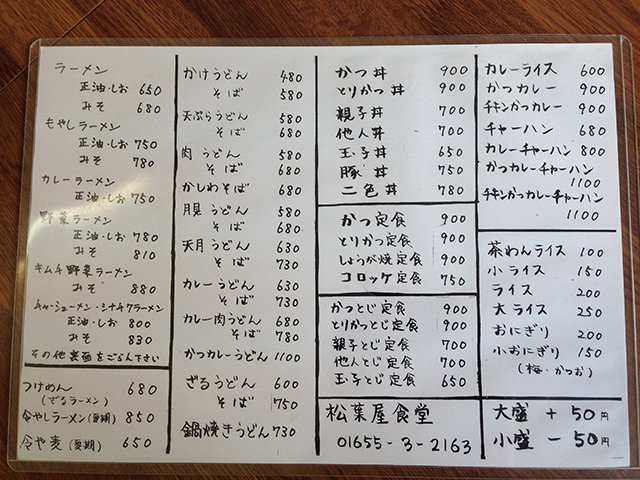 ラーメン
正油・しお 650
みそ 680
もやしラーメン
正油・しお 750
みそ 780
カレーラーメン
正油・しお 750
野菜ラーメン
正油・しお 780
みそ 810
キムチ野菜ラーメン
みそ 880
チャーシューメン・シナチクラーメン
正油・しお 800
みそ 830
その他裏面をごらん下さい
つけめん 680
(ざるラーメン)
冷やしラーメン(夏期) 850
冷や麦(夏期) 650
かけうどん 480
そば 580
天ぷらうどん 580
そば 680
肉うどん 580
そば 680
かしわそば 680
月見うどん 580
そば 680
天月うどん 630
そば 730
カレーうどん 630
そば 730
カレー肉うどん 680
そば 780
かつカレーうどん 1100
ざるうどん 600
そば 750
鍋焼きうどん 730
かつ丼 900
とりかつ丼 900
親子丼 700
他人丼 700
玉子丼 650
豚丼 750
二色丼 780
かつ定食 900
とりかつ定食 900
しょうが焼定食 900
コロッケ定食 750
かつとじ定食 900
とりかつとじ定食 900
親子とじ定食 700
他人とじ定食 700
玉子とじ定食 650
松葉屋食堂
01655-3-2163
カレーライス 600
かつカレー 900
チキンかつカレー 900
チャーハン 680
カレーチャーハン 800
かつカレーチャーハン
1100
チキンかつカレーチャーハン
1100
茶わんライス 100
小ライス 150
ライス 200
大ライス 250
おにぎり 200
小おにぎり 150
(梅・かつお)
大盛 + 50円
小盛 - 50円